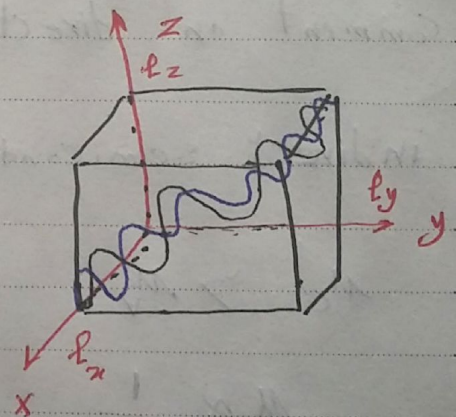 z
lz
ly
y
lx
x